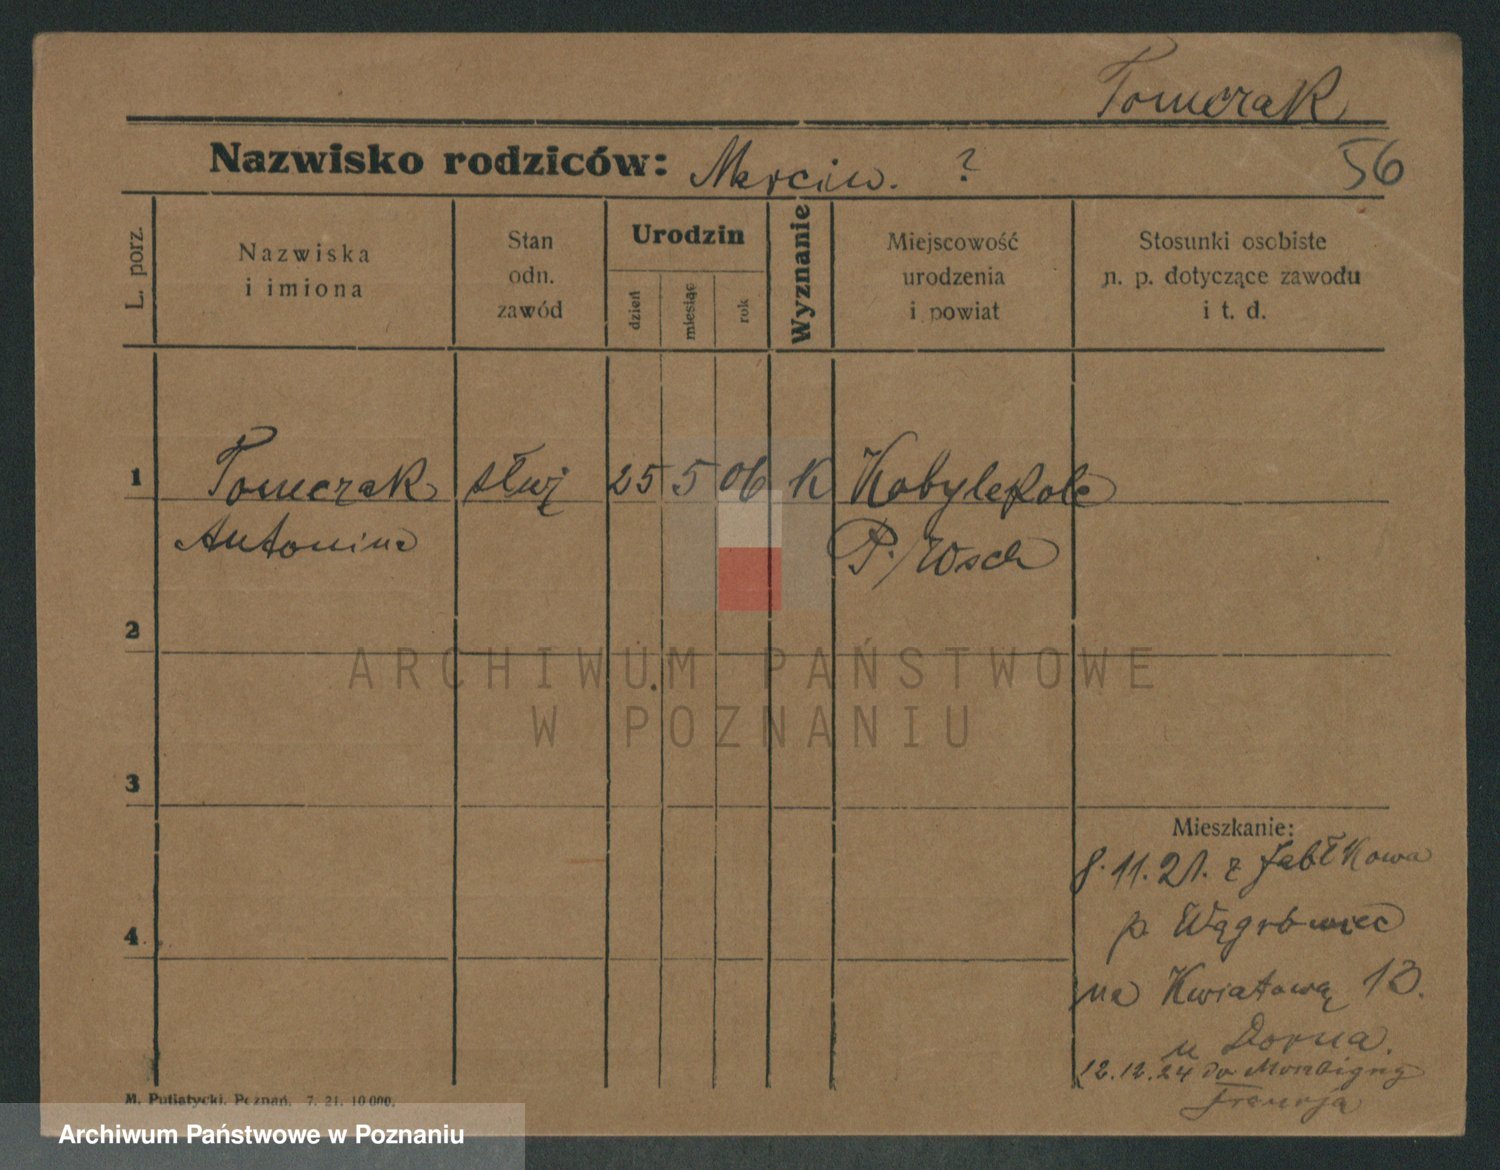 Tomczak
Nazwisko rodziców: Marcin. ?
56
L. porz.
Nazwiska
i imiona
Stan
odn.
zawód
Urodzin
dzień
miesiąc
rok
Wyznanie
Miejscowość
urodzenia
i powiat
Stosunki osobiste
n. p. dotyczące zawodu
i t. d.
1
Tomczak
służ
25
5
06
K
Kobylepole
Antonina
P./Wsch
2
ARCHIWUM PAŃSTWOWE
W POZNANIU
3
Mieszkanie:
8.11.21. z Jabłkowa
p. Wągrowiec
4
na Kwiatową 13.
u Dorna.
12.12.24 do
Francja
M. Putiatycki, Poznań, 7. 21. 10 000.
Archiwum Państwowe w Poznaniu